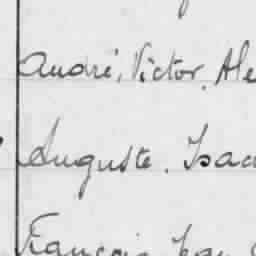 André, Victor, Ale
Auguste. Isaa
François Jean